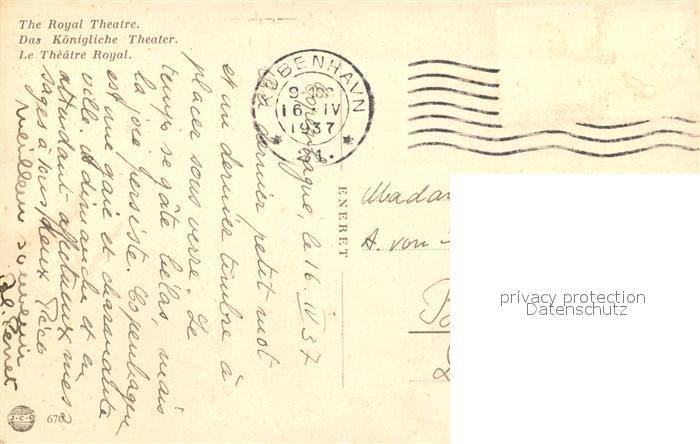 The Royal Theatre.
Das Königliche Theater.
Le Théâtre Royal.
KØBENHAVN
16 IV
1937
ENERET
Copenhague, le 16. IV 37
dernier petit mot
et un dernier timbre à
placer sous verre. Le
temps se gâte hélas, mais
la joie persiste. Copenhague
est une gaie et charmante
ville. A dimanche et en
attendant affectueux mes-
sages à tous deux
meilleur souvenir
Madam
A. von
privacy protection
Datenschutz